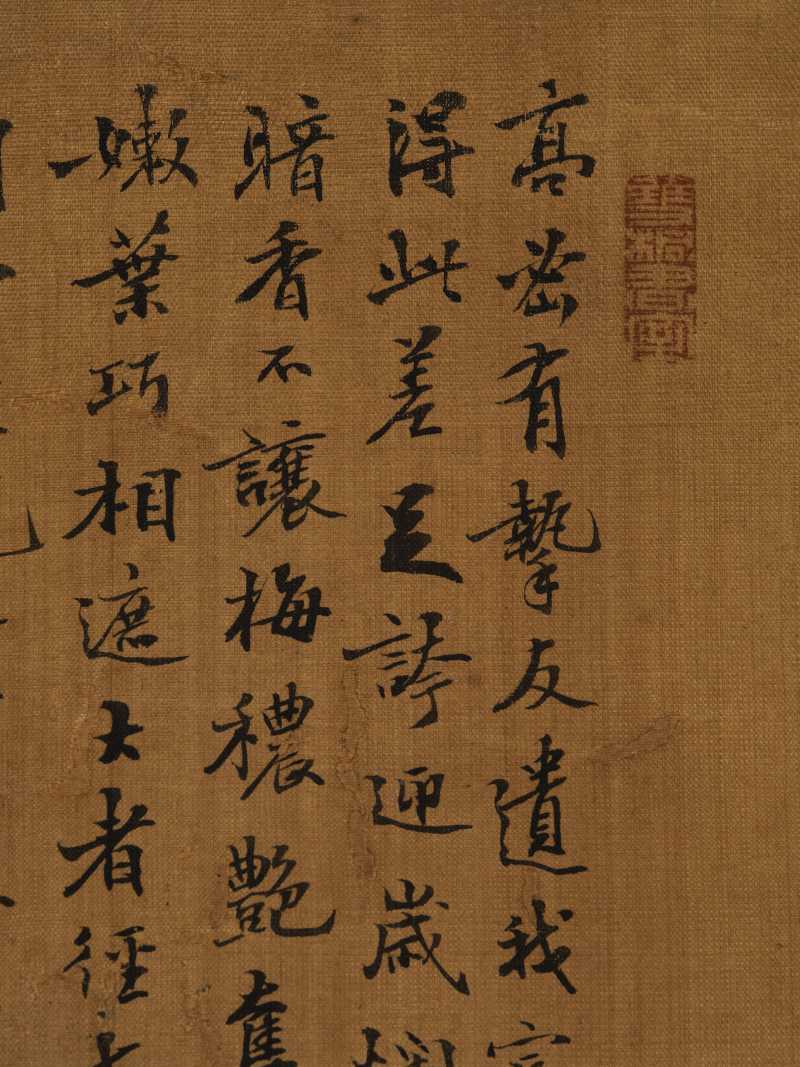 高密有摯友遺我
得此差足誇迎歲
暗香不讓梅穠艷奪
嫩葉巧相遮大者徑